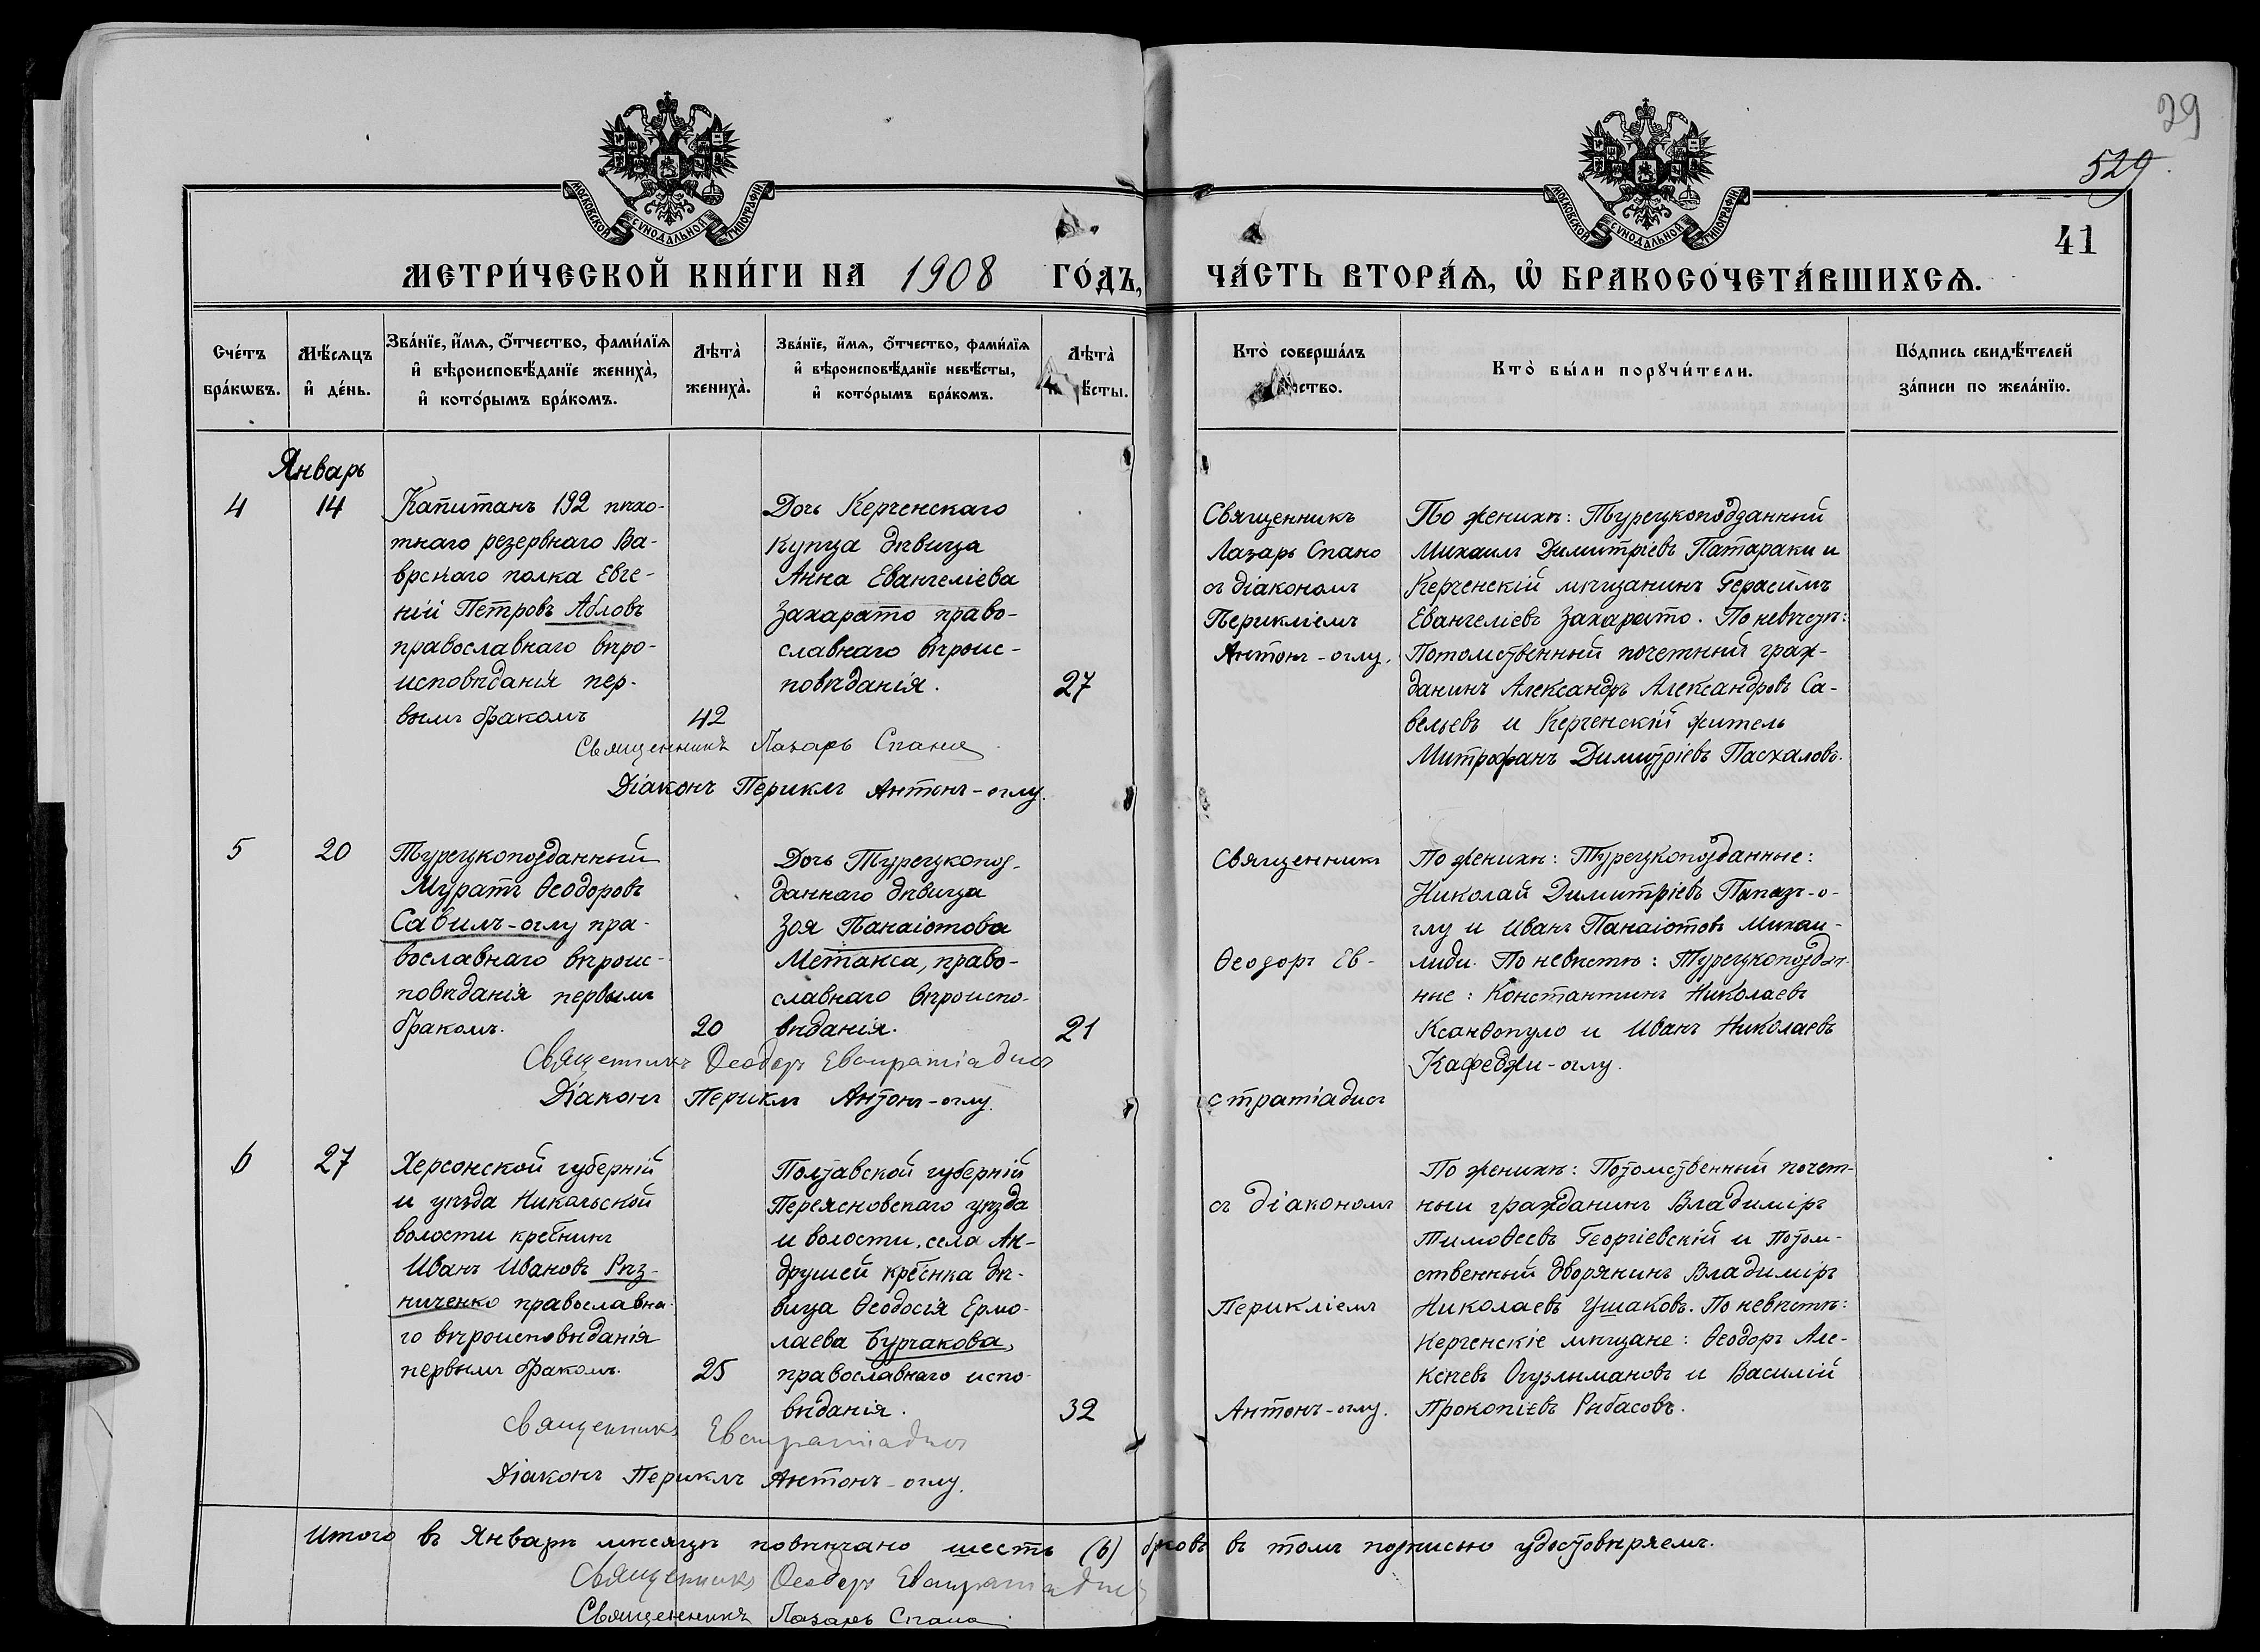 29
529.
41
МОСКОВСКОЙ СѴНОДАЛЬНОЙ ТИПОГРАФІИ
МОСКОВСКОЙ СѴНОДАЛЬНОЙ ТИПОГРАФІИ
МЕТРИ́ЧЕСКОЙ КНИ́ГИ НА 1908 ГО́ДЪ,
ЧА́СТЬ ВТОРА́Ѧ, Ѡ БРАКОСОЧЕТА́ВШИХСѦ.
Сче́тъ
бра́кѡвъ.
Мѣ́сѧцъ
и҆ де́нь.
Зва́нїе, и҆́мѧ, ѻ҆́тчество, фами́лїѧ
и҆ вѣроисповѣ́данїе жениха̀,
и҆ кото́рымъ бра́комъ.
Лѣта̀
жениха̀.
Зва́нїе, и҆́мѧ, ѻ҆́тчество, фами́лїѧ
и҆ вѣроисповѣ́данїе невѣ́сты,
и҆ кото́рымъ бра́комъ.
Лѣта̀
ѣ́сты.
Кто̀ соверша́лъ
ство.
Кто̀ бы́ли порꙋчи́тели.
По́дпись свидѣ́телей
за́писи по жела́нїю.
Январь
4
14
Капитанъ 192 пѣхо-
тнаго резервнаго Ва-
врскаго полка Евге-
ній Петровъ Абловъ
православнаго вѣро-
исповѣданія пер-
вымъ бракомъ
42
Дочь Керченскаго
купца дѣвица
Анна Евангеліева
Захарато право-
славнаго вѣроис-
повѣданія.
27
Священникъ
Лазарь Спано
съ діакономъ
Перикліемъ
Антонъ-оглу.
По женихѣ: Турецкоподданный
Михаилъ Димитріевъ Патараки и
Керченскій мѣщанинъ Герасимъ
Евангеліевъ Захарато. По невѣстѣ:
Потомственный почетный граж-
данинъ Александръ Александровъ Са-
вельевъ и Керченскій житель
Митрофанъ Димитріевъ Пасхаловъ.
Священникъ Лазарь Спано
Діаконъ Периклъ Антонъ-оглу.
5
20
Турецкоподданный
Муратъ Ѳеодоровъ
Савилъ-оглу пра-
вославнаго вѣроис-
повѣданія первымъ
бракомъ.
20
Дочь Турецкопод-
даннаго дѣвица
Зоя Панаіотова
Метакса, право-
славнаго вѣроиспо-
вѣданія.
21
Священникъ
Ѳеодоръ Ев-
стратіадисъ
По женихѣ: Турецкоподданные:
Николай Димитріевъ Папазъ-о-
глу и Иванъ Панаіотовъ Михаи-
лиди. По невѣстѣ: Турецкоподдан-
ные: Константинъ Николаевъ
Ксанѳопуло и Иванъ Николаевъ
Кафеджи-оглу.
Священникъ Ѳеодоръ Евстратіадисъ
Діаконъ Периклъ Антонъ-оглу.
6
27
Херсонской губерніи
и уѣзда Никольской
волости крестнинъ
Иванъ Ивановъ Рѣз-
ниченко православна-
го вѣроисповѣданія
первымъ бракомъ.
25
Полтавской губерніи
Переясновскаго уѣзда
и волости, села Ан-
друшей крестнка дѣ-
вица Ѳеодосія Ермо-
лаева Бурчакова,
православнаго испо-
вѣданія.
32
съ діакономъ
Перикліемъ
Антонъ-оглу.
По женихѣ: Потомственный почет-
ный гражданинъ Владиміръ
Тимоѳеевъ Георгіевскій и Потом-
ственный дворянинъ Владиміръ
Николаевъ Ушаковъ. По невѣстѣ:
Керченскіе мѣщане: Ѳеодоръ Але-
ксѣевъ Огузлымановъ и Василій
Прокопіевъ Рибасовъ.
Священникъ Евстратіадисъ
Діаконъ Периклъ Антонъ-оглу.
Итого въ Январѣ мѣсяцѣ повѣнчано шесть (6) брковъ въ томъ подписью удостовѣряемъ.
Священникъ Ѳеодоръ Евстратіадисъ
Священникъ Лазарь Спано